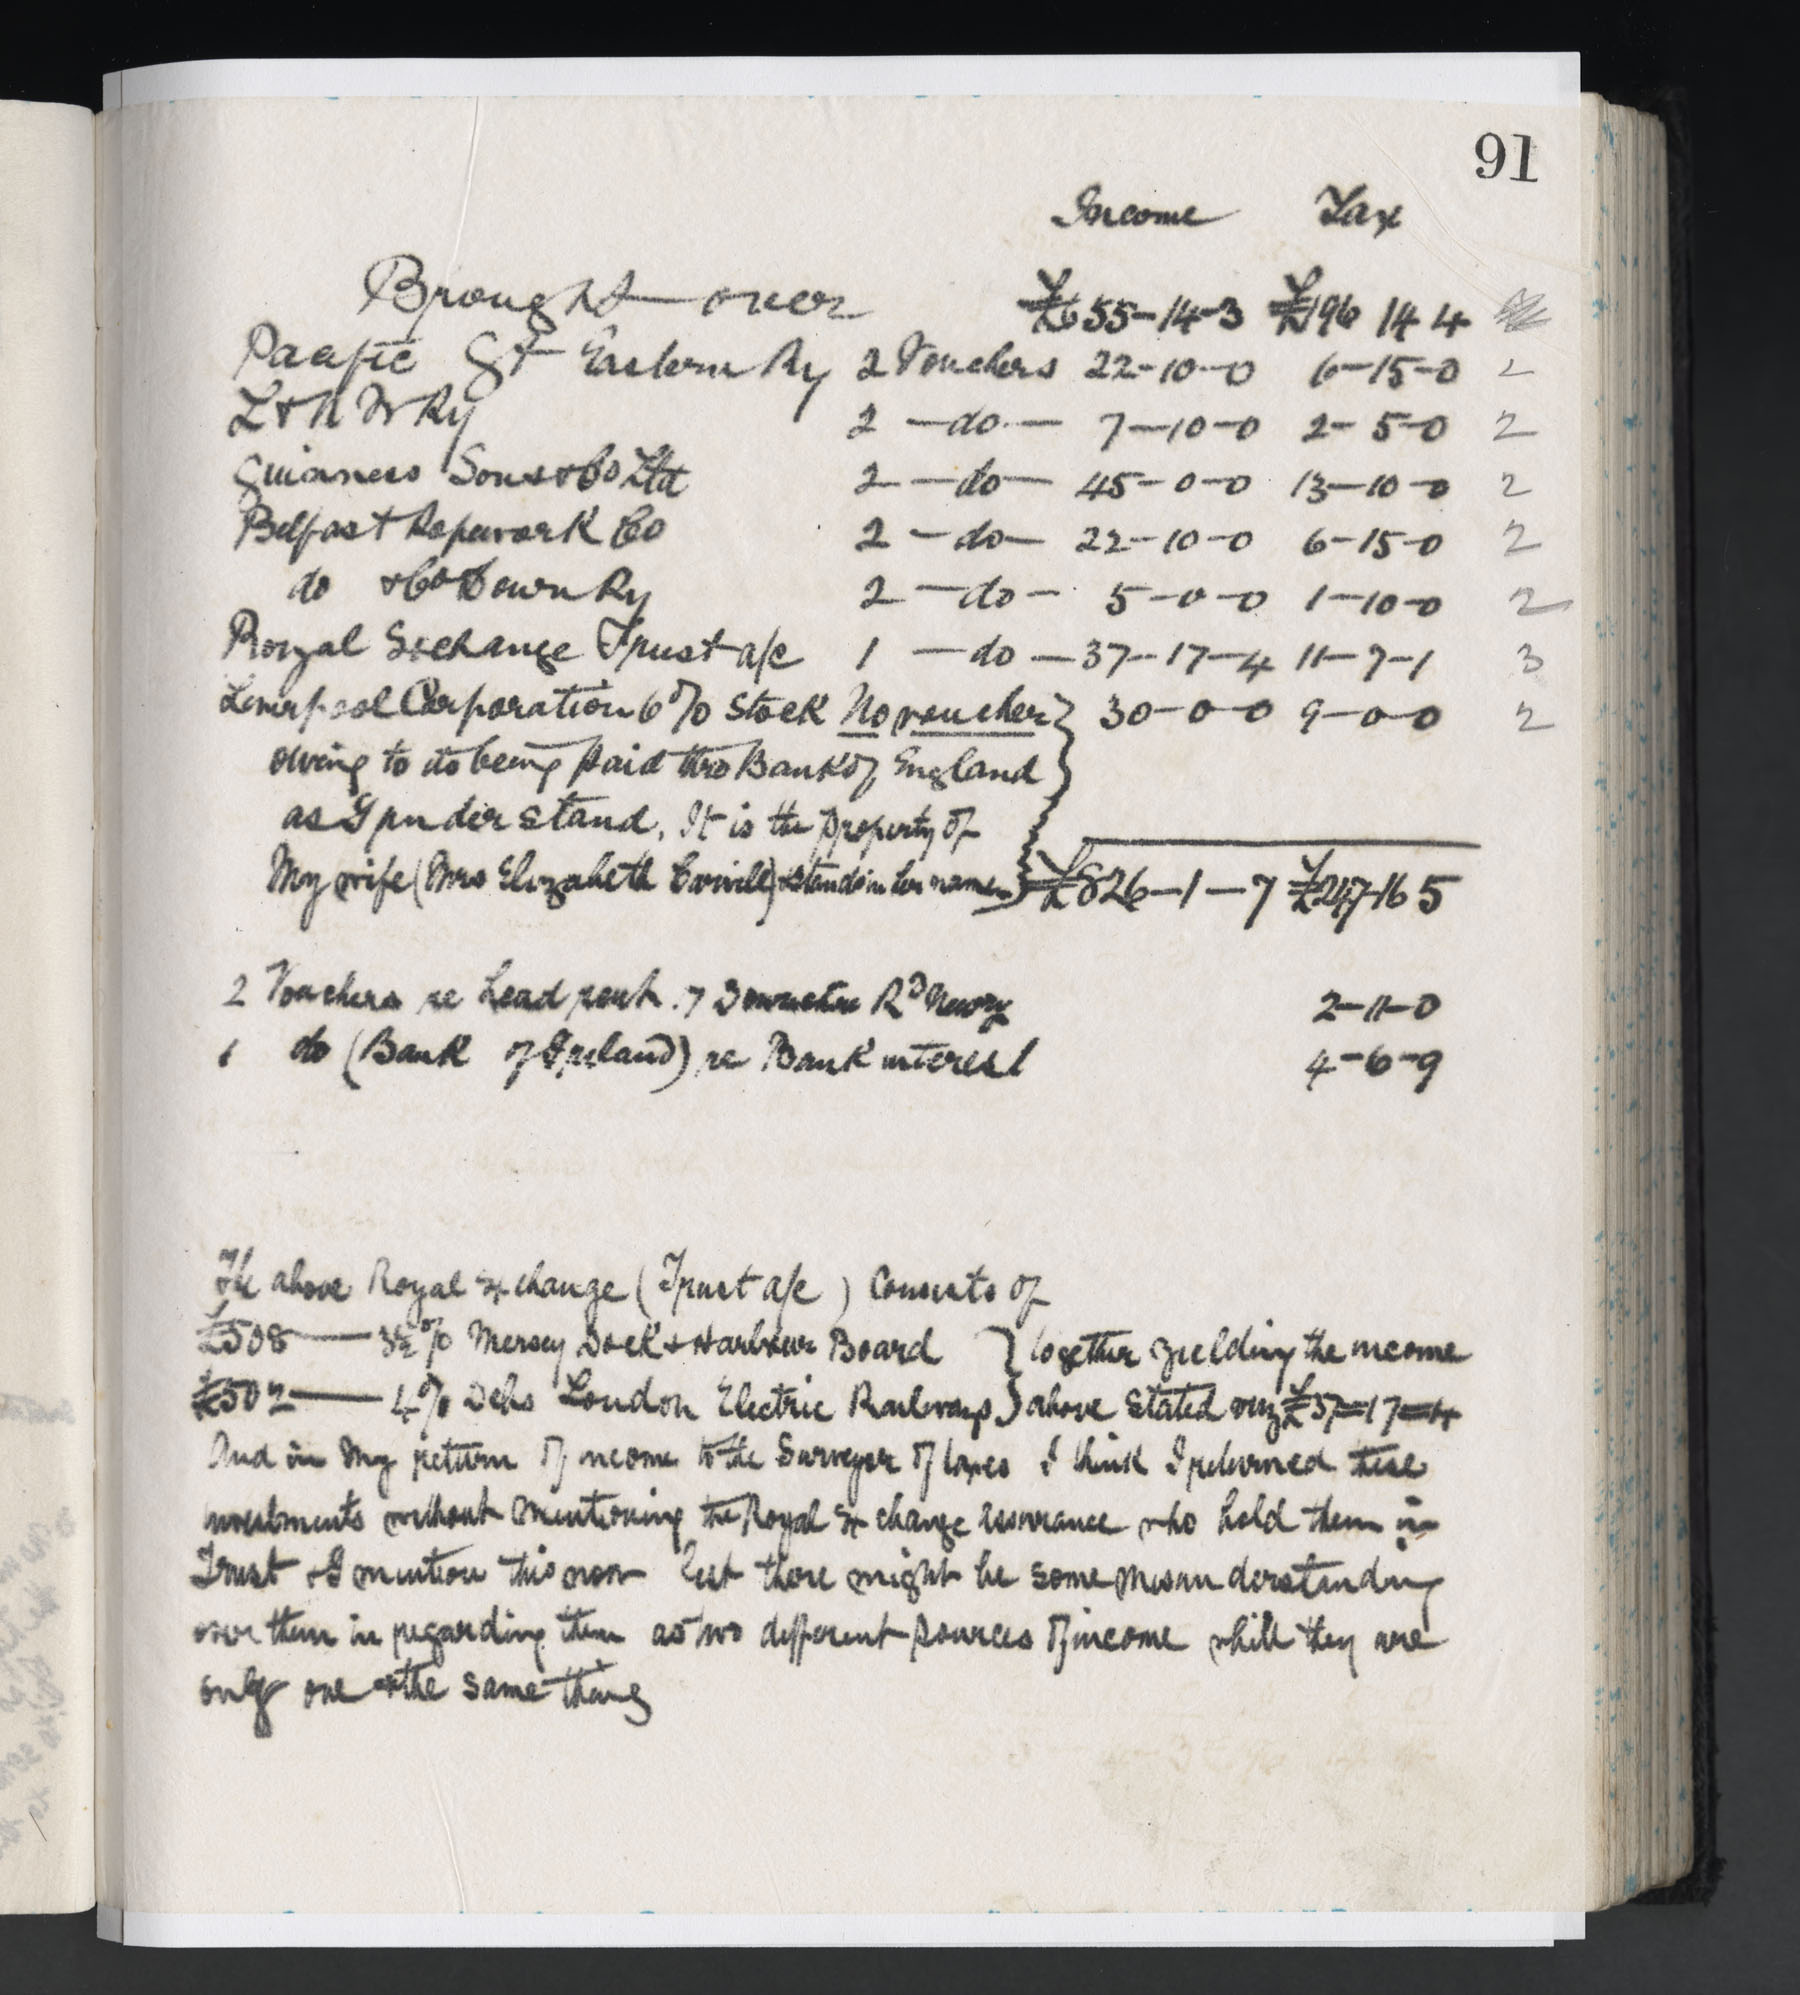 91
Income Tax
Brought over £655-14-3 £196 14 4
Pacific Gt Eastern Ry 2 Vouchers 22-10-0 6-15-0 2
L & N W Ry 2 -do- 7-10-0 2-5-0 2
Guinness Sons & Co Ltd 2 -do- 45-0-0 13-10-0 2
Belfast Ropework Co 2 -do- 22-10-0 6-15-0 2
do & Co Down Ry 2 -do- 5-0-0 1-10-0 2
Royal Exchange Trust a/c 1 -do- 37-17-4 11-7-1 3
Liverpool Corporation 6% Stock No voucher 30-0-0 9-0-0 2
owing to its being paid thro Bank of England
as I understand. It is the property of
My wife (Mrs Elizabeth Carvill) & stands in her name £826-1-7 £247-16 5
2 Vouchers re Head rent 7 Downshire Rd Newry 2-11-0
1 do (Bank of Ireland) re Bank interest 4-6-9
The above Royal Exchange (Trust a/c) Consists of
£508 — 3½% Mersey Dock & Harbour Board together yielding the income
£502 — 4% Debs London Electric Railways above stated viz £37-17-4
And in my return of income to the Surveyor of taxes I think I returned these
investments without mentioning the Royal Exchange Assurance who hold them in
Trust & I mention this now lest there might be some misunderstanding
over them in regarding them as two different sources of income while they are
only one & the same thing